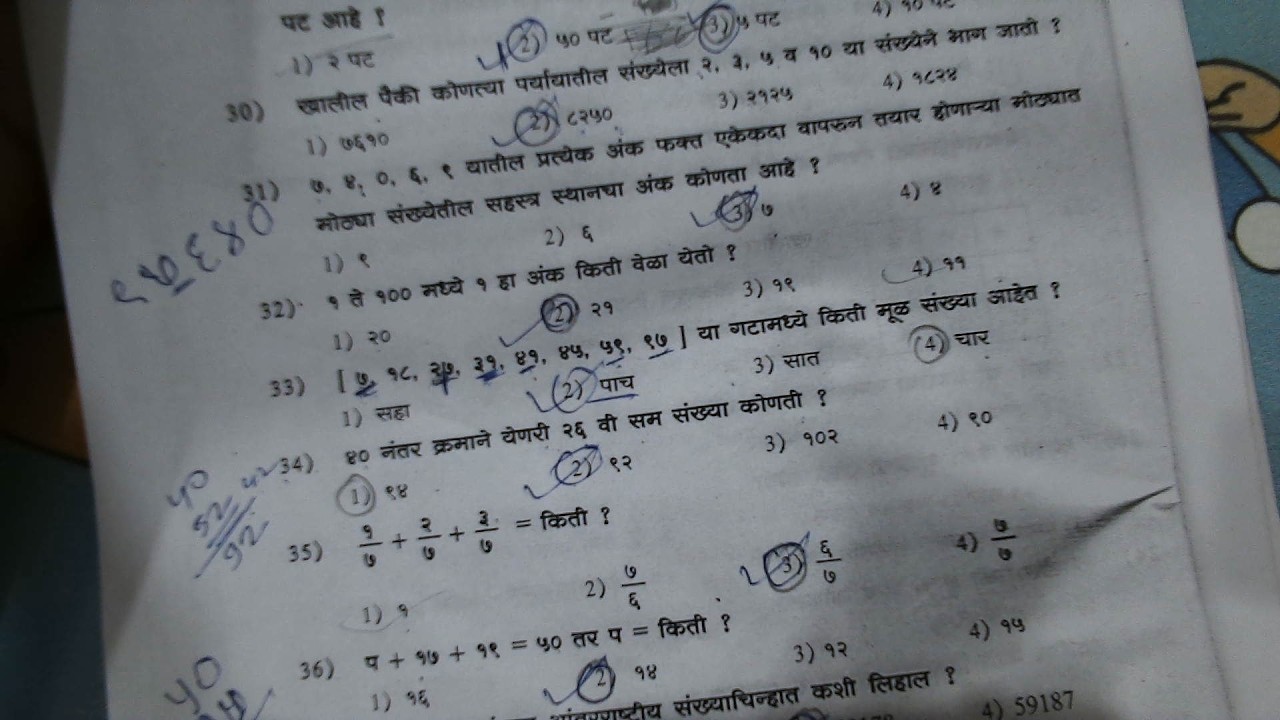 पट आहे ?
1) २ पट 2) ५० पट 3) ५ पट 4) १० पट
30) खालील पैकी कोणत्या पर्यायातील संख्येला २, ३, ५ व १० या संख्येने भाग जातो ?
1) ७६१० 2) ८२५० 3) २१२५ 4) १८२४
31) ७, ४, ०, ६, ९ यातील प्रत्येक अंक फक्त एकेकदा वापरुन तयार होणाऱ्या मोठ्यात
मोठ्या संख्येतील सहस्त्र स्थानचा अंक कोणता आहे ?
९७६४०
1) ९ 2) ६ 3) ७ 4) ४
32) १ ते १०० मध्ये १ हा अंक किती वेळा येतो ?
1) २० 2) २१ 3) १९ 4) ११
33) [ ७, १८, २७, ३१, ४१, ४५, ५९, ९७ ] या गटामध्ये किती मूळ संख्या आहेत ?
1) सहा 2) पाच 3) सात 4) चार
34) ४० नंतर क्रमाने येणरी २६ वी सम संख्या कोणती ?
1) ९४ 2) ९२ 3) १०२ 4) ९०
४०
५२
९२
35) १/७ + २/७ + ३/७ = किती ?
1) १ 2) ७/६ 3) ६/७ 4) ७/७
36) प + १७ + १९ = ५० तर प = किती ?
1) १६ 2) १४ 3) १२ 4) १५
५०
आंतरराष्ट्रीय संख्याचिन्हात कशी लिहाल ?
4) 59187